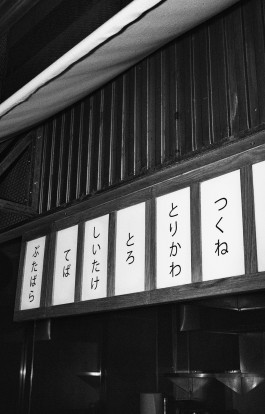 つくね
とりかわ
とろ
しいたけ
てば
ぶたばら